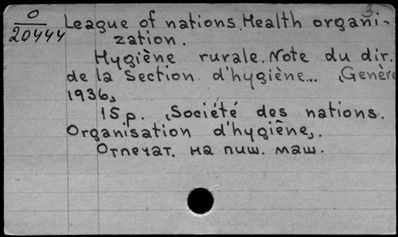 3.
O
20444
League of nations. Health organi-
zation.
Hygiène rurale. Note du dir.
de la Section d'hygiène... (Genève
1936)
15 p. (Société des nations.
Organisation d'hygiène).
Отпечат. на пиш. маш.